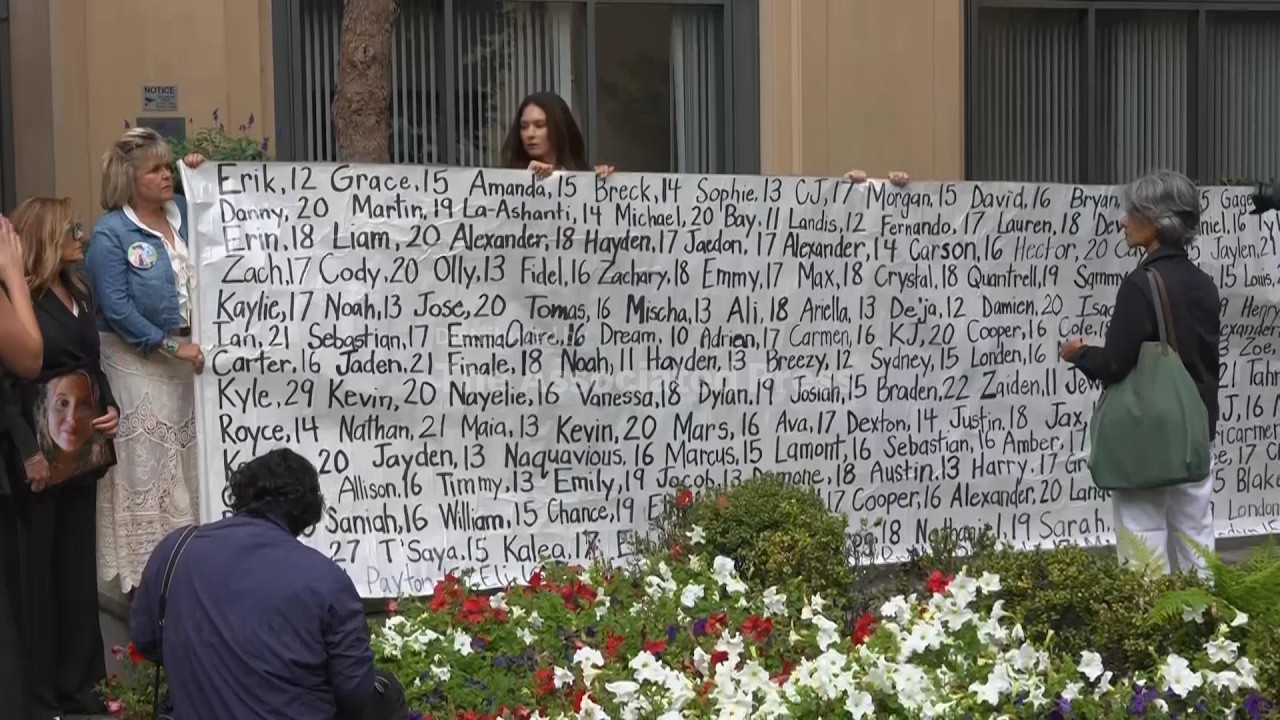 NOTICE
Erik,12 Grace,15 Amanda,15 Breck,14 Sophie,13 CJ,17 Morgan,15 David,16 Bryan,
Danny, 20 Martin,19 La-Ashanti,14 Michael,20 Bay,11 Landis,12 Fernando,17 Lauren,18
Erin,18 Liam,20 Alexander,18 Hayden,17 Jaedon,17 Alexander,14 Carson,16 Hector,20 Jaylen,21
Zach,17 Cody,20 Olly,13 Fidel,16 Zachary,18 Emmy,17 Max,18 Crystal,18 Quantrell,19 15 Louis,
Kaylie,17 Noah,13 Jose,20 Tomas,16 Mischa,13 Ali,18 Ariella,13 De'ja,12 Damien,20
Ian,21 Sebastian,17 EmmaClaire,16 Dream,10 Adrian,17 Carmen,16 KJ,20 Cooper,16 Cole,
Carter,16 Jaden,21 Finale,18 Noah,11 Hayden,13 Breezy,12 Sydney,15 Landen,16 Zoe,
Kyle,29 Kevin,20 Nayelie,16 Vanessa,18 Dylan,19 Josiah,15 Braden,22 Zaiden,11
Royce,14 Nathan,21 Maia,13 Kevin,20 Mars,16 Ava,17 Dexton,14 Justin,18 Jax,
20 Jayden,13 Naquavious,16 Marcus,15 Lamont,16 Sebastian,16 Amber,17
Allison,16 Timmy,13 Emily,19 Jacob,13 18 Austin,13 Harry,17
Saniah,16 William,15 Chance,19 17 Cooper,16 Alexander,20 London
27 T'Saya,15 Kalea,17 18 19 Sarah,
Payton
The Associated Press